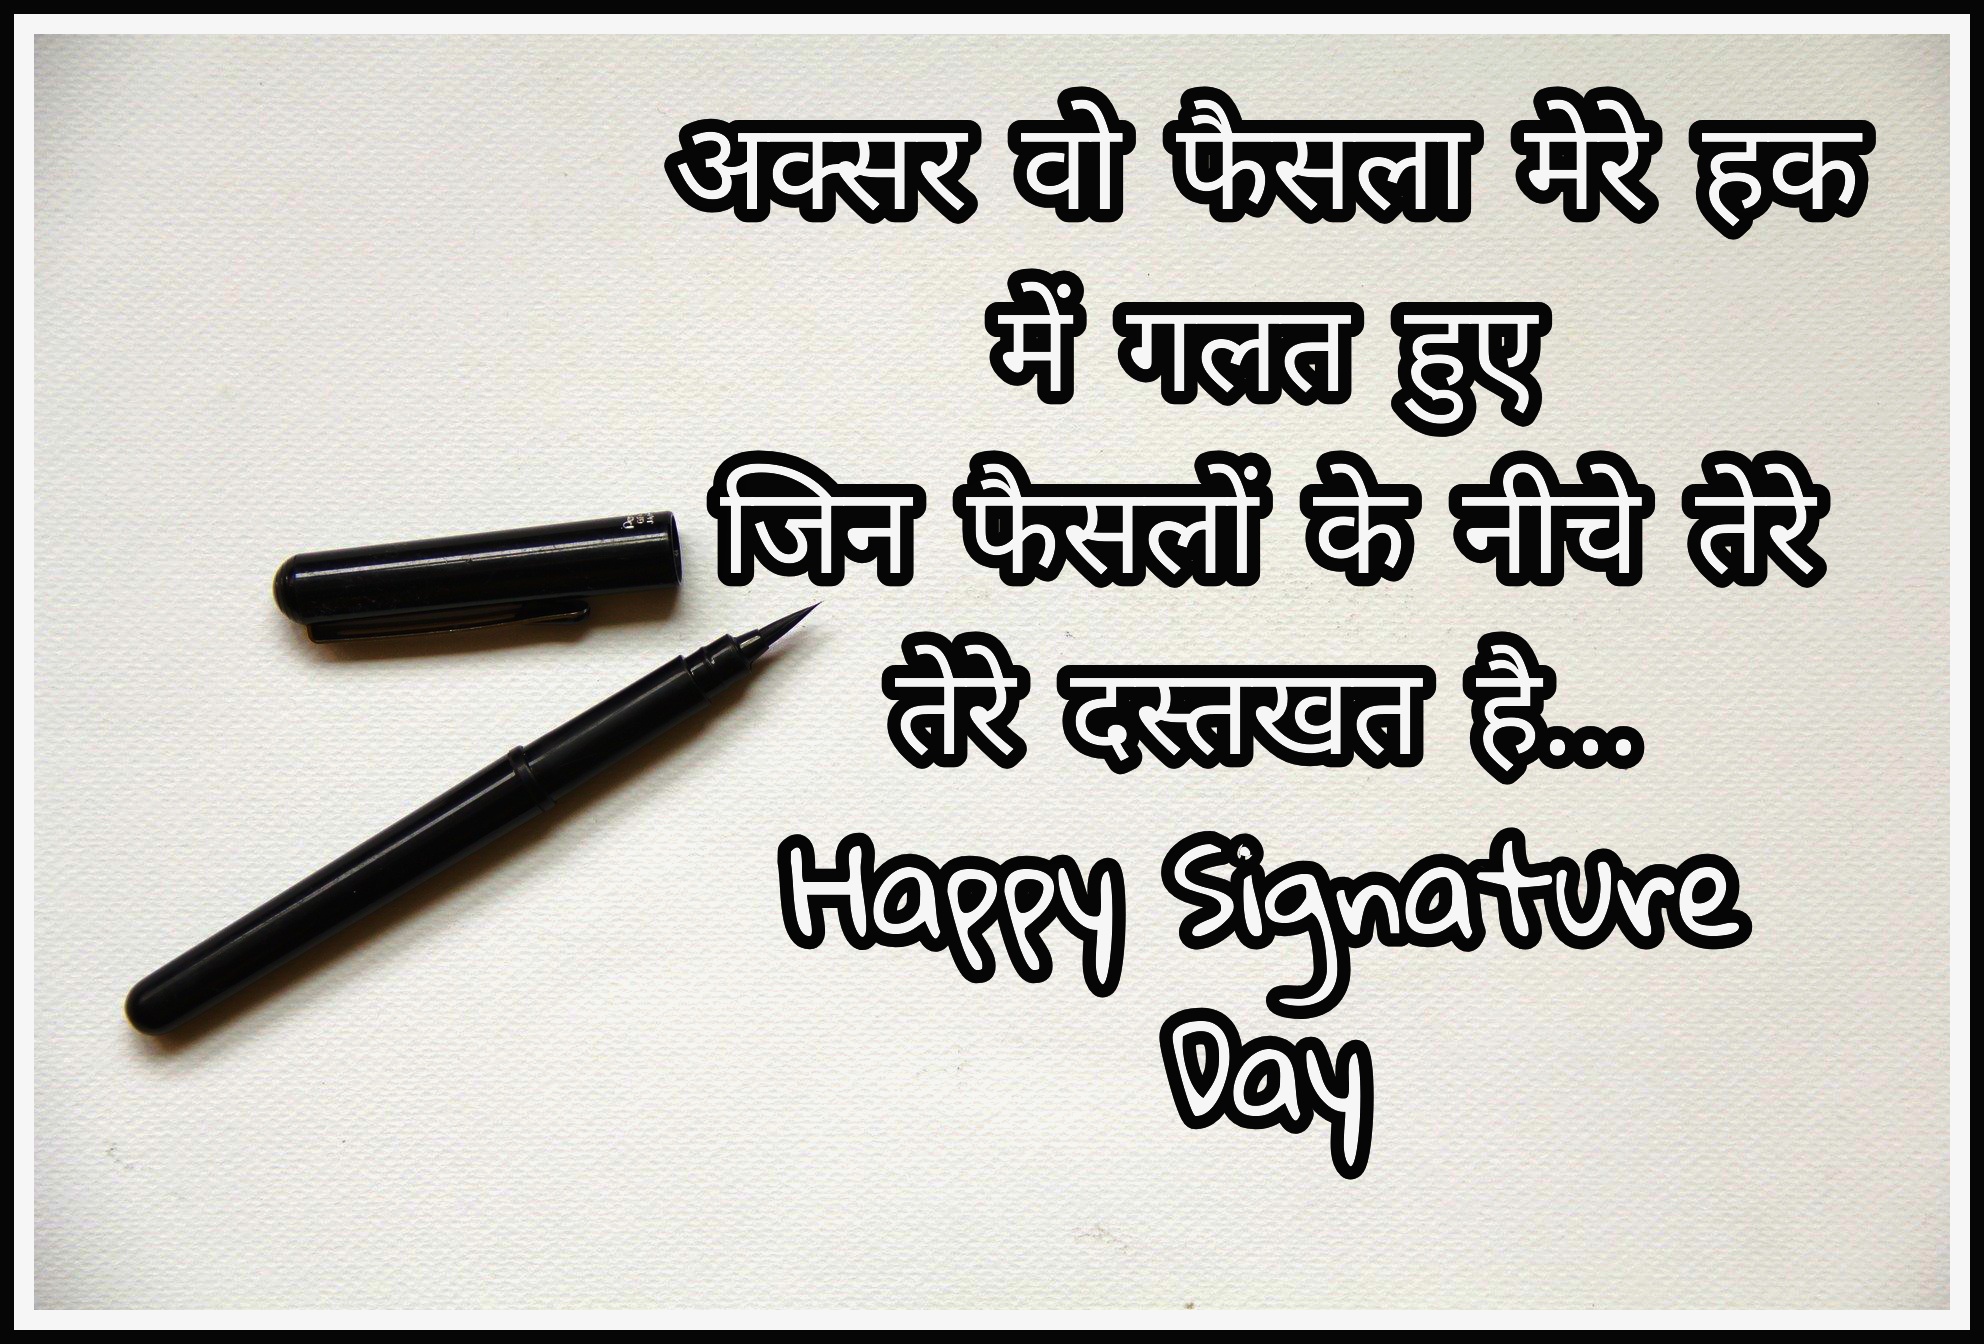 अक्सर वो फैसला मेरे हक
में गलत हुए
जिन फैसलों के नीचे तेरे
तेरे दस्तखत है...
Happy Signature
Day